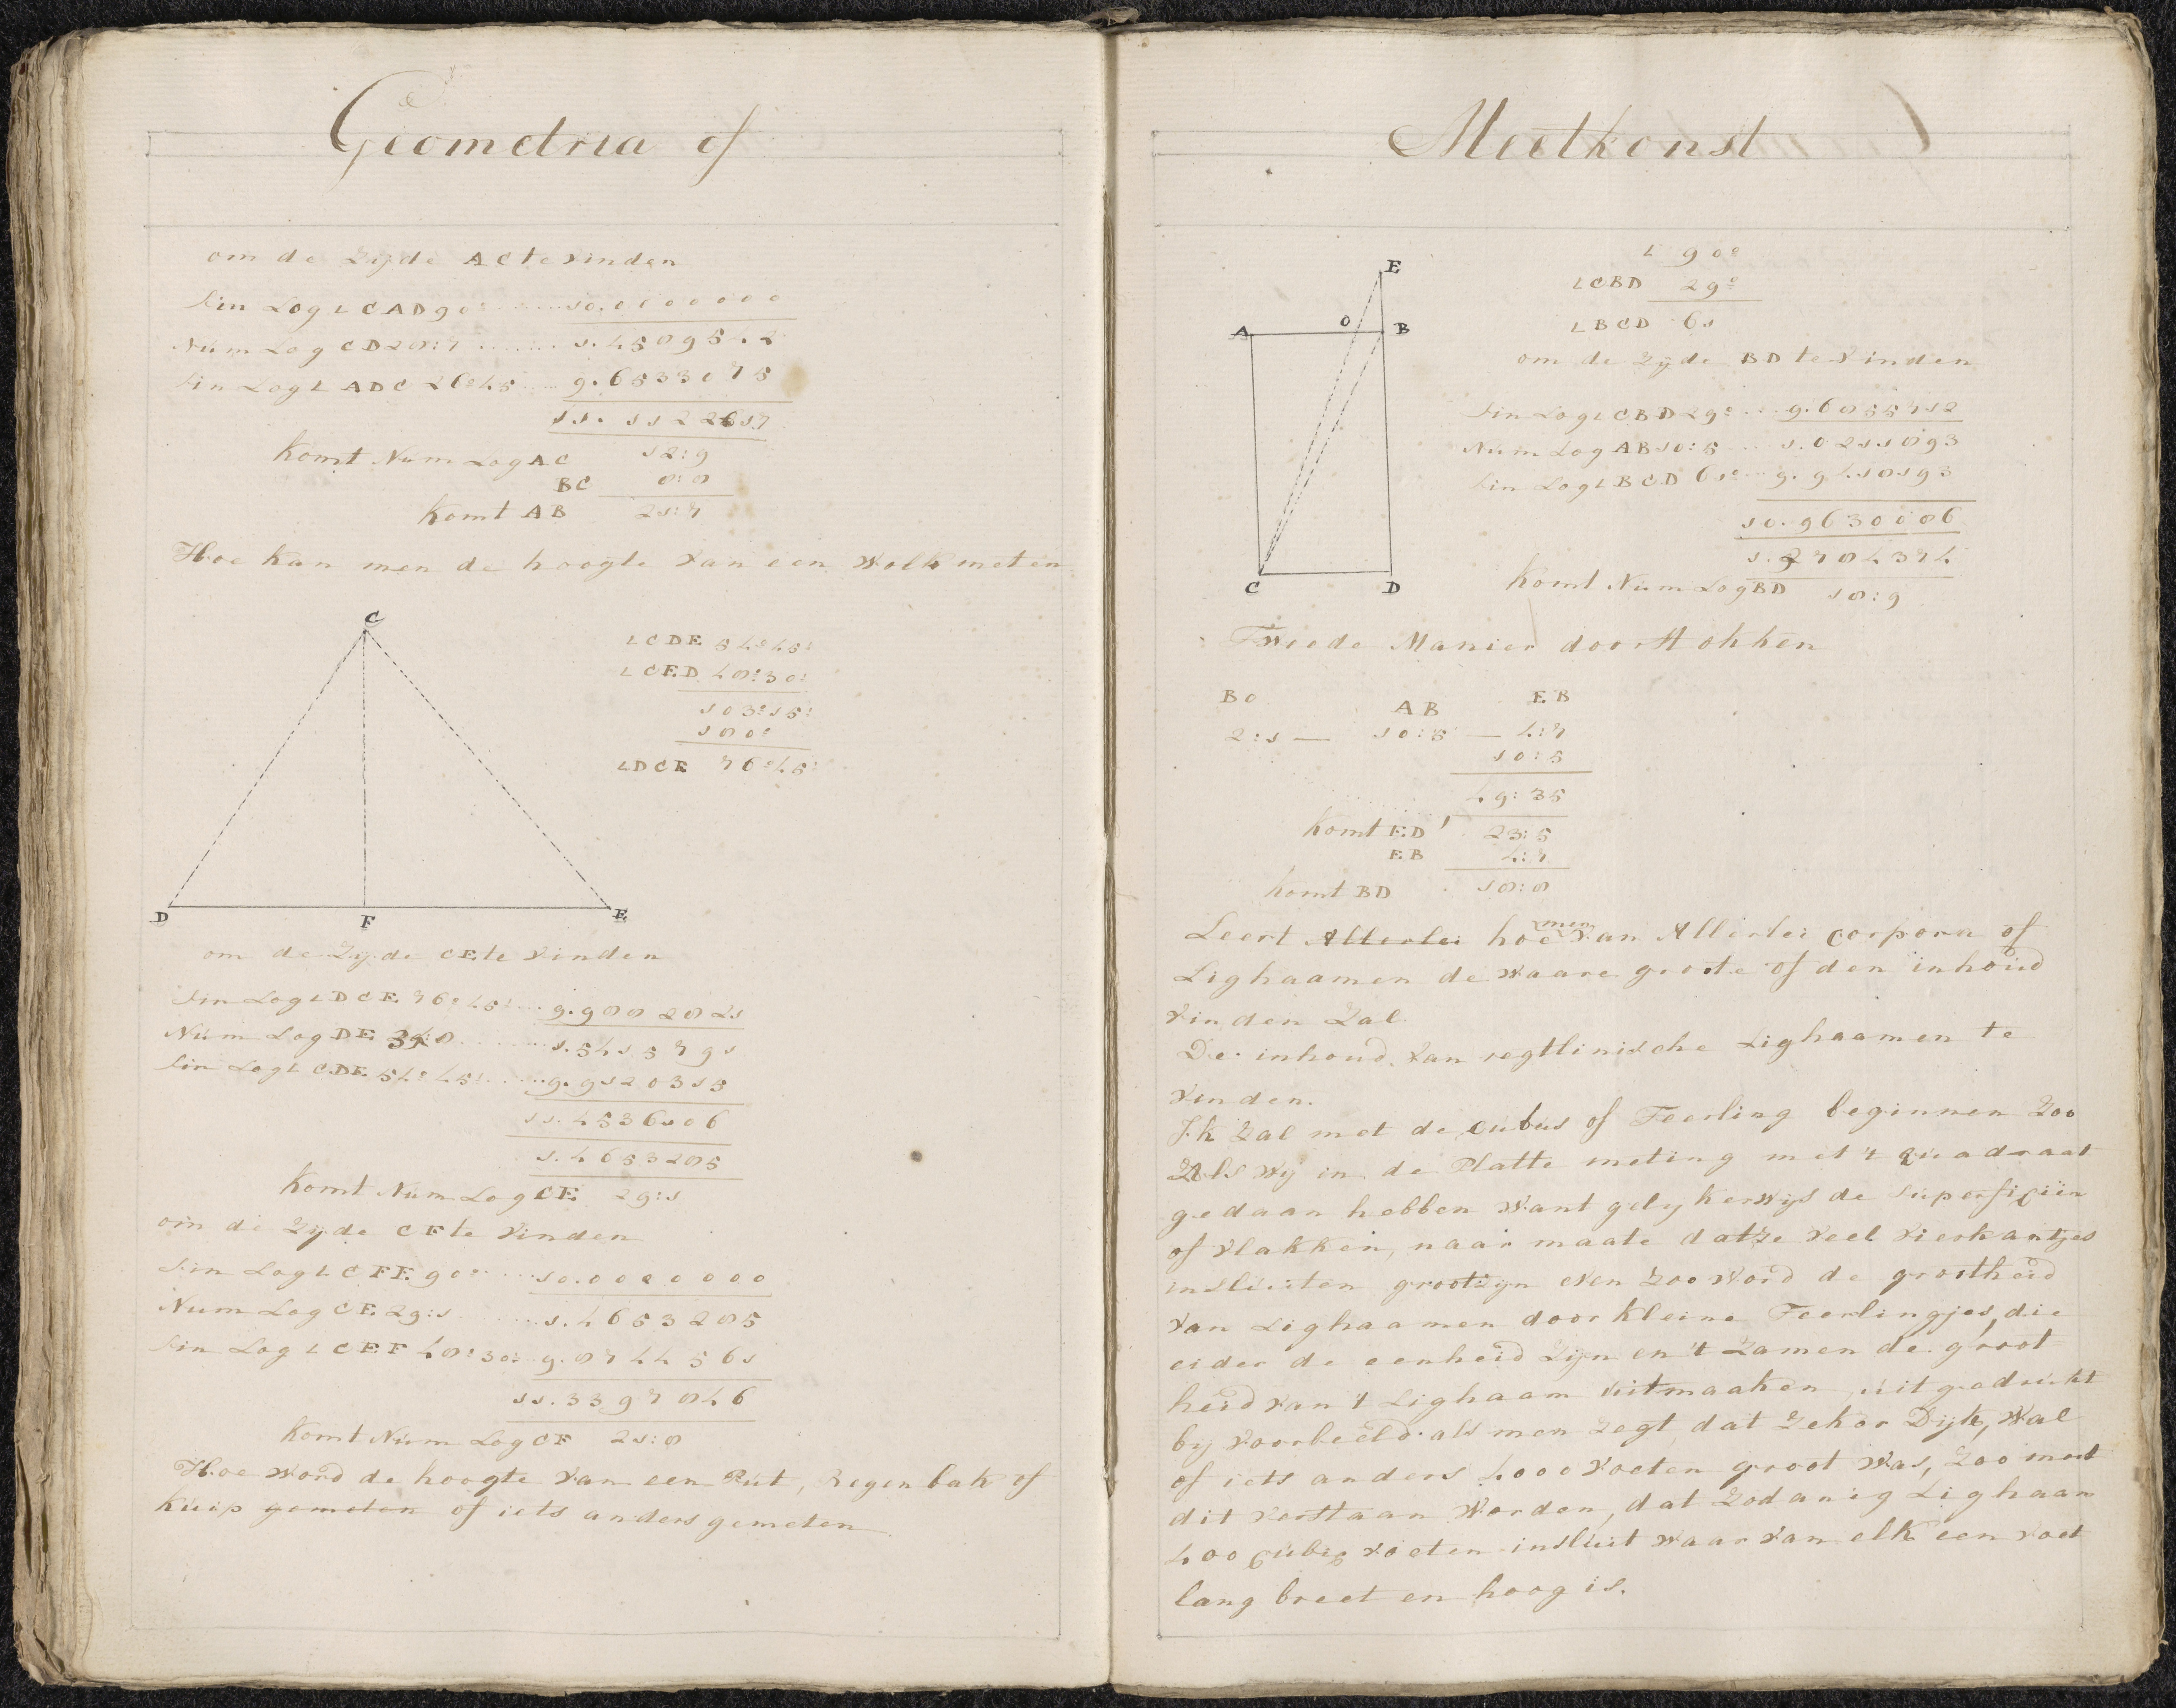 Geometria of
om de Zyde AC te vinden
Sin Log L CAD 90° ...... 10.0000000
Num Log CD 28:7 ...... 1.4589542
Sin Log L ADC 26°:45 ... 9.6533075
11.1122617
Komt Num Log AC 12:9
BC 8:8
Komt AB 21:7
Hoe kan men de hoogte van een Wolk meten
C
D F E
L CDE 54°:45'
L CED 48°:30'
103°:15'
180°
L DCE 76°:45'
om de Zyde CE te vinden
Sin Log L DCE 76°:45' ... 9.9882821
Num Log DE 34:8 ...... 1.5415791
Sin Log L CDE 54°:45' ... 9.9120315
11.4536106
1.4653285
Komt Num Log CE 29:1
om de Zyde CF te vinden
Sin Log L CFE 90° ... 10.0000000
Num Log CE 29:1 ... 1.4653285
Sin Log L CEF 48°:30' 9.8744561
11.3397846
Komt Num Log CF 21:8
Hoe word de hoogte van een Put, Regenbak of
Kuip gemeten of iets anders gemeten
Meetkonst
E
A O B
C D
L 90°
L CBD 29°
L BCD 61
om de Zyde BD te vinden
Sin Log L CBD 29° ... 9.6855712
Num Log AB 10:5 ... 1.0211893
Sin Log L BCD 61° ... 9.9418193
10.9630086
1.2784374
Komt Num Log BD 18:9
Tweede Manier door Stokken
BO AB EB
2:1 — 10:5 — 4:7
10:5
49:35
Komt ED 23:5
EB 4:7
Komt BD 18:8
Leert Allerlei hoe men van Allerlei corpora of
Lighaamen de waare groote of den inhoud
vinden Zal.
De inhoud van regtlinische Lighaamen te
vinden.
Ik Zal met de cubus of Teerling beginnen Zoo
Als wy in de Platte meting met 't quadraat
gedaan hebben Want gelykerwys de Superficiën
of vlakken, naar maate dat ze veel vierkantjes
insluiten groot zyn even Zoo word de grootheid
van Lighaamen door kleine Teerlingjes, die
eider de eenheid Zyn en 't Zamen de groot
heid van 't Lighaam uitmaaken, uitgedrukt
by voorbeeld als men Zegt dat Zeker Dyk, Wal
of iets anders 4000 voeten groot was, Zoo moet
dit verstaan Worden, dat Zodanig Lighaam
400 cubig voeten insluit waar van elk een voet
lang breet en hoog is.